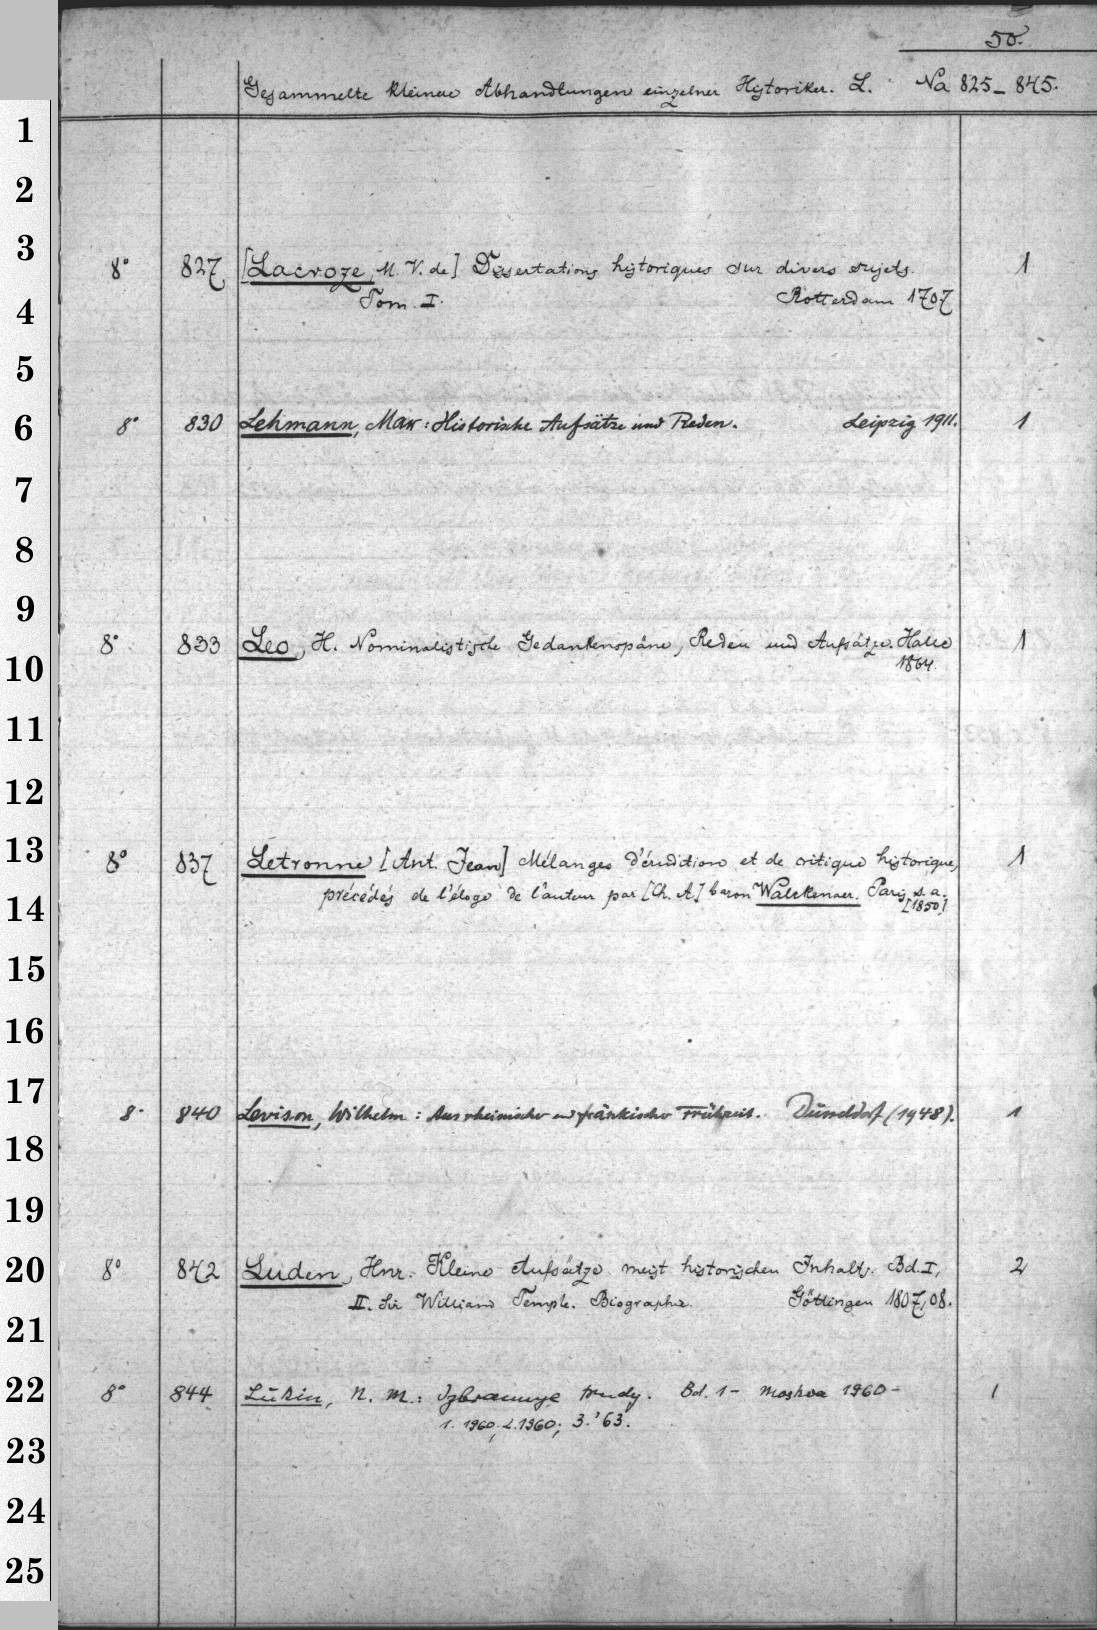 50.
Gesammelte kleinere Abhandlungen einzelner Historiker. L. Na 825-845.
1
2
3
8° 827 [Lacroze, M. V. de] Dissertations historiques sur divers sujets. 1
4
Tom. I. Rotterdam 1707
5
6
8° 830 Lehmann, Max: Historische Aufsätze und Reden. Leipzig 1911. 1
7
8
9
8° 833 Leo, H. Nominalistische Gedankenspäne, Reden und Aufsätze. Halle 1
10
1864.
11
12
13
8° 837 Letronne [Ant. Jean] Mélanges d'érudition et de critique historique, 1
précédés de l'éloge de l'auteur par [Ch. A.] baron Walckenaer. Paris s. a.
14
[1850]
15
16
17
8° 840 Levison, Wilhelm: Aus rheinischer und fränkischer Frühzeit. Düsseldorf (1948). 1
18
19
20
8° 842 Luden, Hnr. Kleine Aufsätze meist historischen Inhalts. Bd. I, 2
II. Sir William Temple. Biographie. Göttingen 1807, 08.
21
22
8° 844 Lukin, N. M.: Izbrannye trudy. Bd. 1- Moskva 1960- 1
1. 1960; 2. 1960; 3. '63.
23
24
25